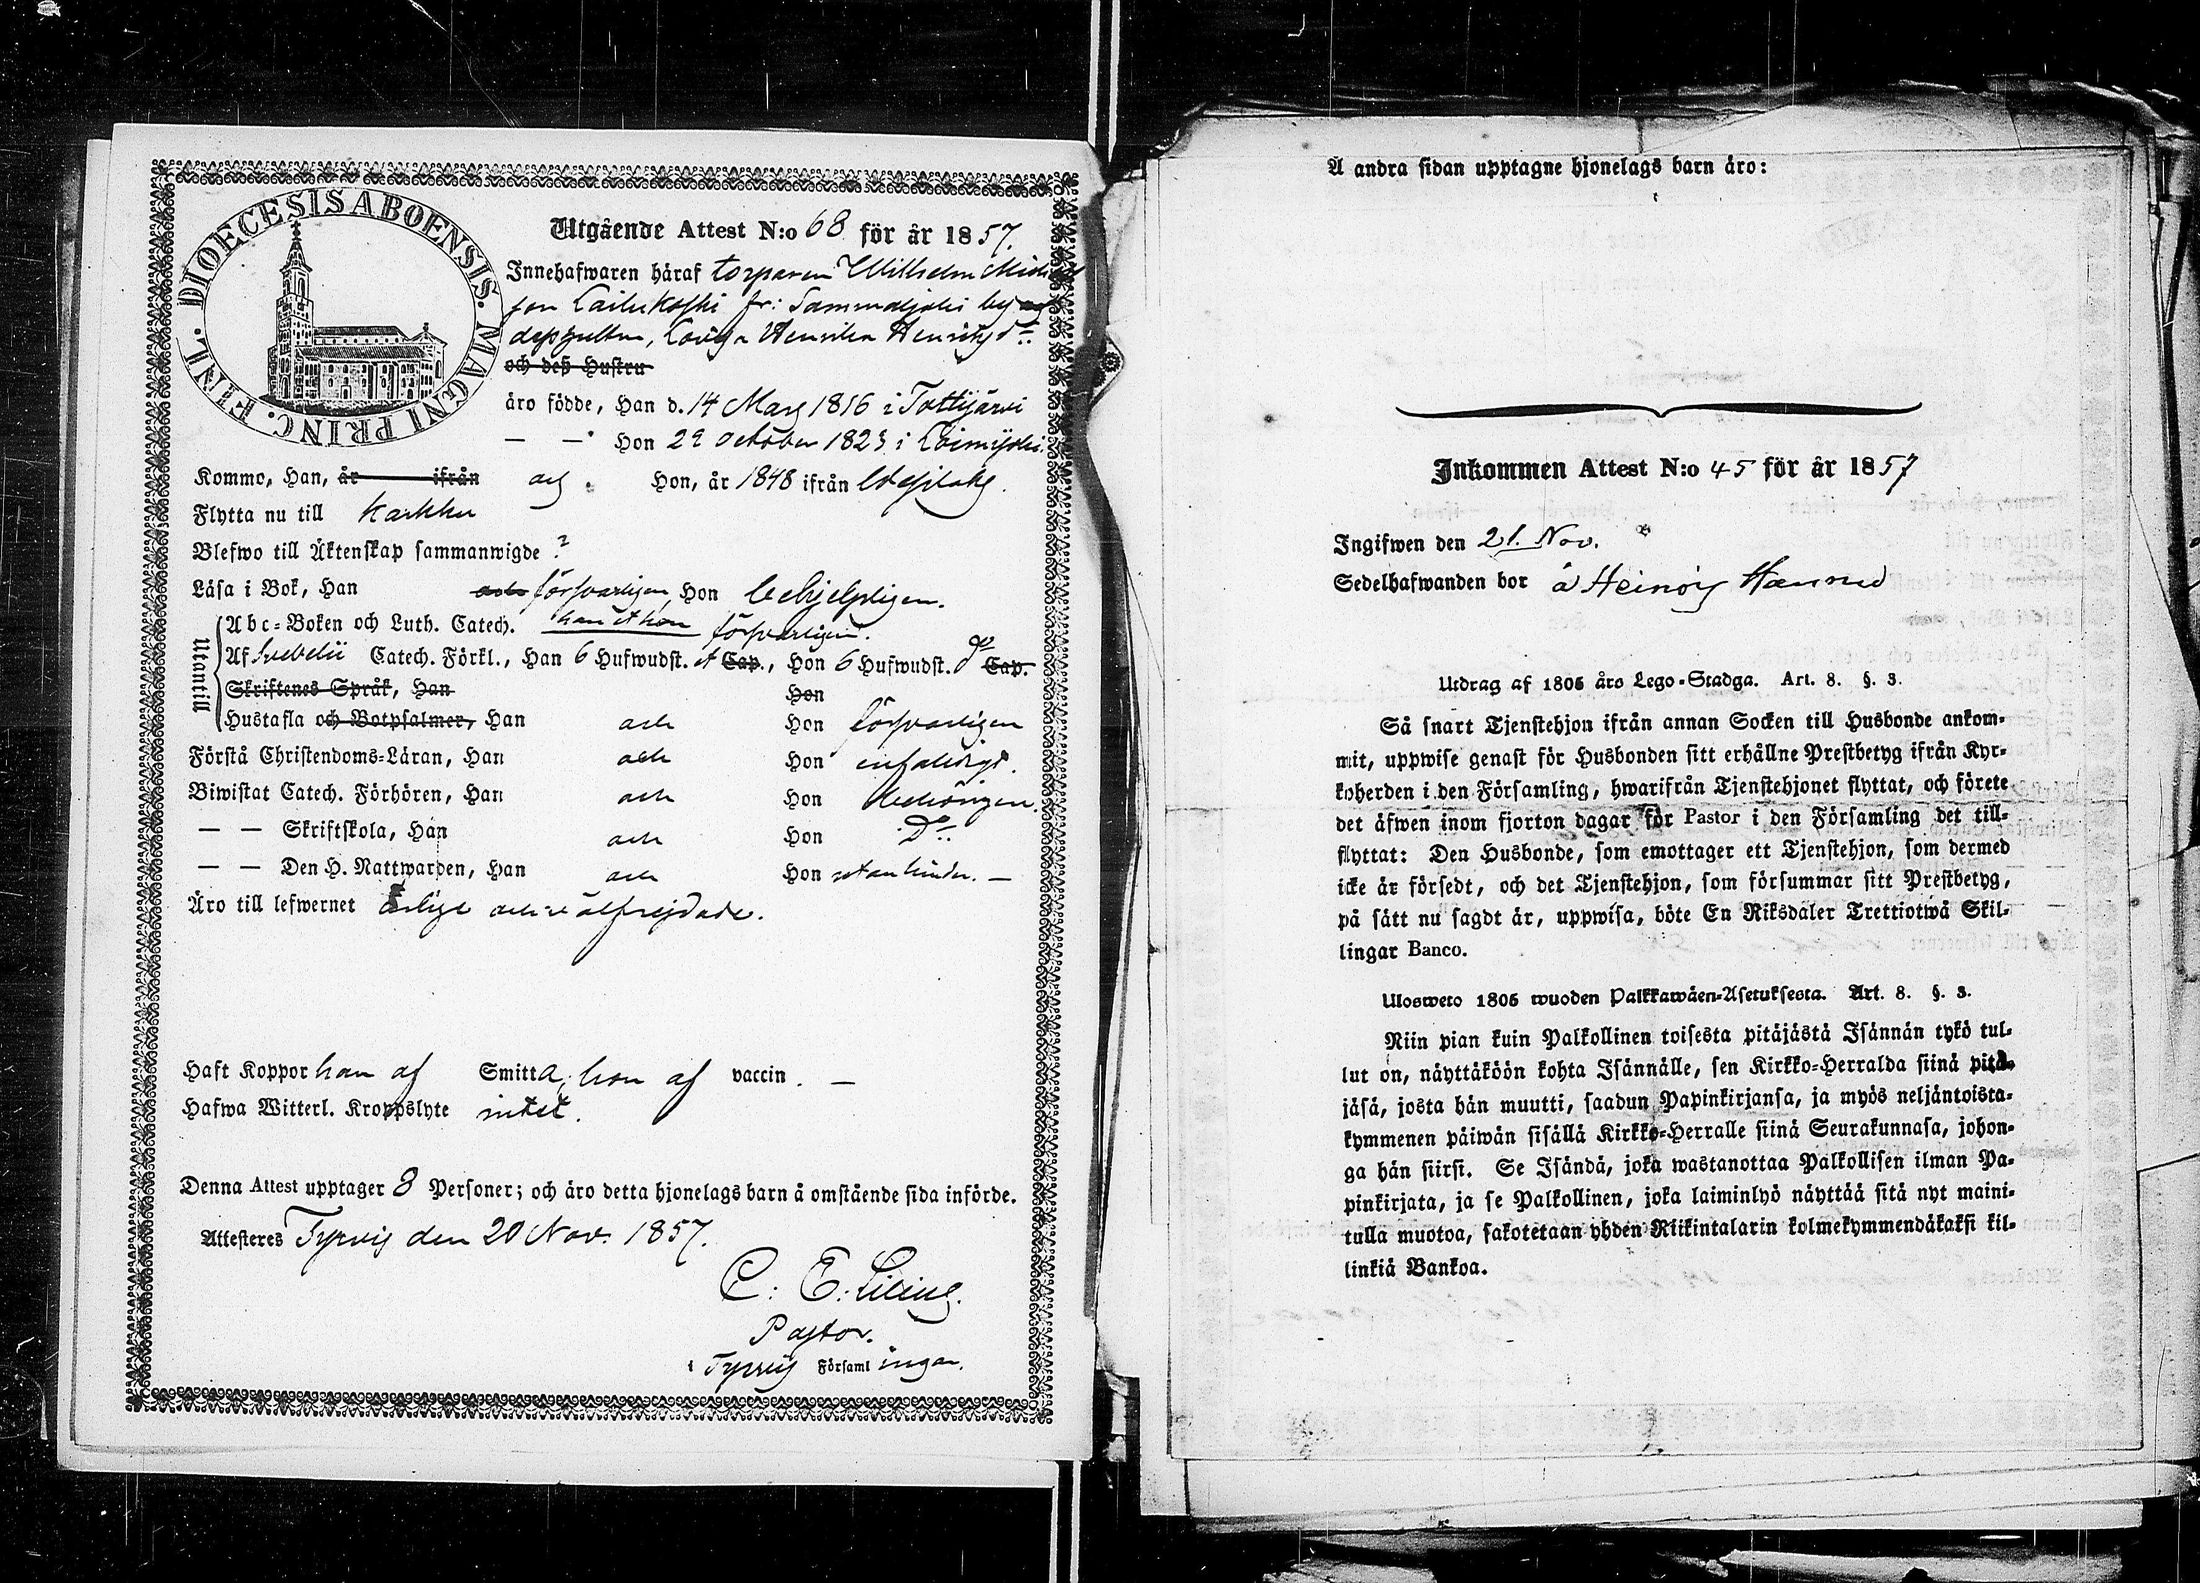 DIOECESIS ABOENSIS. MAGNI PRINC. FINL.
Utgående Attest N:o 68 för år 1857.
Innehafwaren häraf torparen Wilhelm
son fr: Sammaljoki by
Lovisa Henrika
och deß Hustru
äro födde, Han d. 14 Mars 1816 i Tottijärvi
— — Hon 29 october 1823 i
Kommo, Han, år ifrån Hon, år 1848 ifrån
Flytta nu till Karkku
Blefwo till Äktenskap sammanwigde ?
Läsa i Bok, Han och försvarligen Hon behjelpligen.
Utantill
Abc-Boken och Luth. Catech. han et hon försvarligen.
Af Svebelii Catech. Förkl., Han 6 Hufwudst. et Cap., Hon 6 Hufwudst. Cap.
Skriftenes Språk, Han Hon
Hustafla och Botpsalmer, Han och Hon försvarligen
Förstå Christendoms-Läran, Han och Hon enfaldigt.
Biwistat Catech. Förhören, Han och Hon behörigen.
— — Skriftskola, Han och Hon D:o
— — Den H. Nattwarden, Han och Hon utan hinder. —
Äro till lefwernet ärlige och välfrejdade.
Haft Koppor han af Smitta, hon af vaccin. —
Hafwa Witterl. Kroppslyte intet.
Denna Attest upptager 8 Personer; och äro detta hjonelags barn å omstående sida införde.
Attesteres Tyrvis den 20 Nov. 1857.
C. E. Lilius.
Pastor.
i Tyrvis Församl ingar.
Å andra sidan upptagne hjonelags barn äro:
Inkommen Attest N:o 45 för år 1857
Ingifwen den 21. Nov.
Sedelhafwanden bor å Heinois
Utdrag af 1805 års Lego-Stadga. Art. 8. §. 3.
Så snart Tjenstehjon ifrån annan Socken till Husbonde ankom-
mit, uppwise genast för Husbonden sitt erhållne Prestbetyg ifrån Kyr-
koherden i den Församling, hwarifrån Tjenstehjonet flyttat, och förete
det äfwen inom fjorton dagar för Pastor i den Församling det till-
flyttat: Den Husbonde, som emottager ett Tjenstehjon, som dermed
icke är försedt, och det Tjenstehjon, som försummar sitt Prestbetyg,
på sätt nu sagdt är, uppwisa, böte En Riksdaler Trettiotwå Skil-
lingar Banco.
Ulosweto 1805 wuoden Palkkawäen-Asetuksesta. Art. 8. §. 3.
Niin pian kuin Palkollinen toisesta pitäjästä Isännän tykö tul-
lut on, näyttäköön kohta Isännälle, sen Kirkko-Herralda siinä pitä-
jäsä, josta hän muutti, saadun Papinkirjansa, ja myös neljäntoista-
kymmenen päiwän sisällä Kirkko-Herralle siinä Seurakunnasa, johon-
ga hän siirsi. Se Isändä, joka wastanottaa Palkollisen ilman Pa-
pinkirjata, ja se Palkollinen, joka laiminlyö näyttää sitä nyt maini-
tulla muotoa, sakotetaan yhden Riikintalarin kolmekymmendäkaksi kil-
linkiä Bankoa.